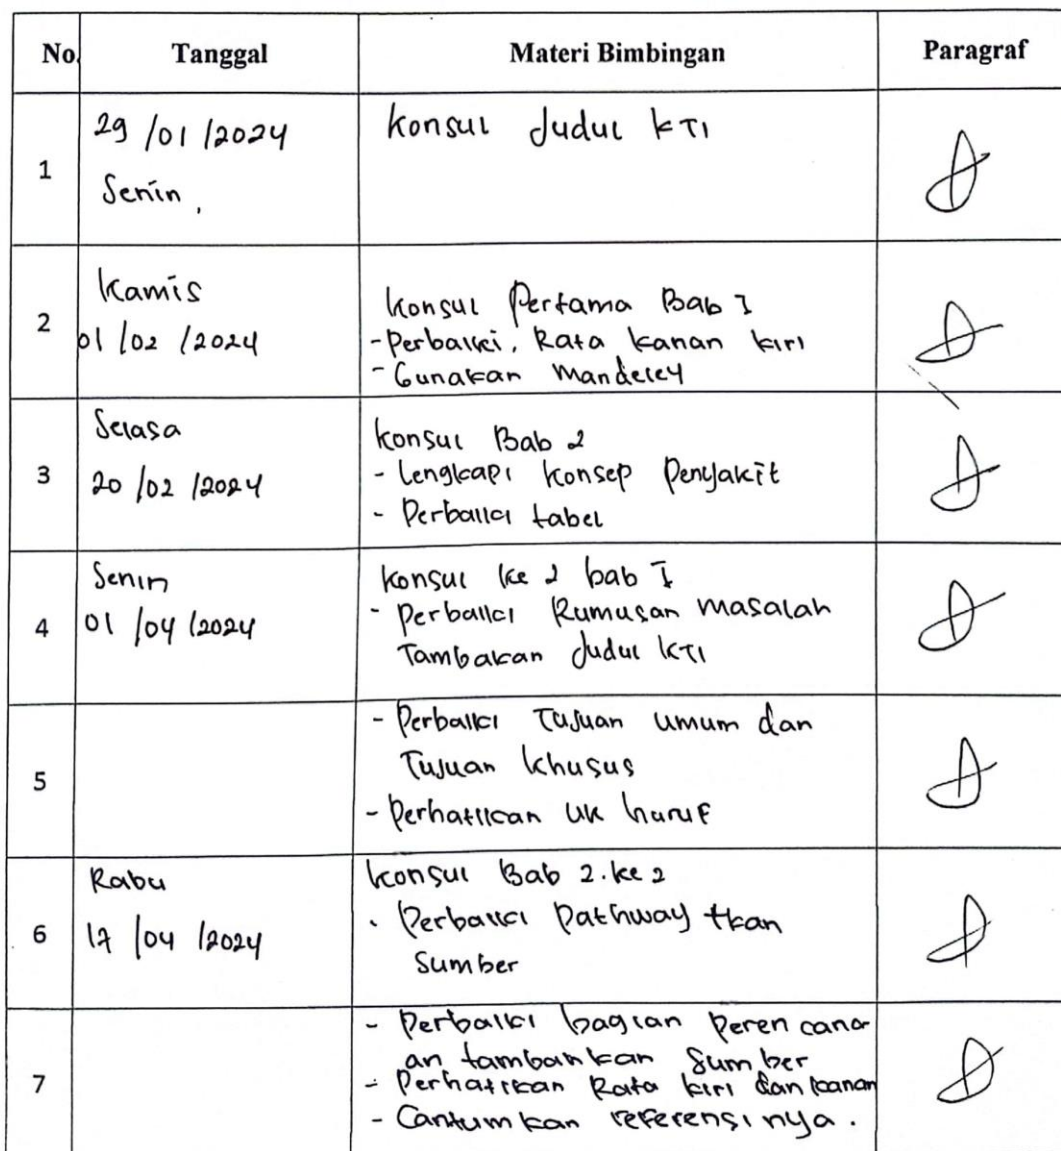 No. Tanggal Materi Bimbingan Paragraf
1
29/01/2024
Senin,
Konsul Judul KTI
2
Kamis
01/02/2024
Konsul Pertama Bab I
- Perbaiki, Rata kanan kiri
- Gunakan Mandeley
3
Selasa
20/02/2024
Konsul Bab 2
- Lengkapi Konsep Penyakit
- Perbaiki tabel
4
Senin
01/04/2024
Konsul ke 2 bab I
- Perbaiki Rumusan masalah
Tambakan Judul KTI
5
- Perbaiki Tujuan umum dan
Tujuan khusus
- Perhatikan uk huruf
6
Rabu
17/04/2024
Konsul Bab 2. ke 2
. Perbaiki Pathway tkan
Sumber
7
- Perbaiki bagian Peren cana
an tambahkan Sumber
- Perhatikan Rata kiri dan kanan
- Cantumkan referensinya.